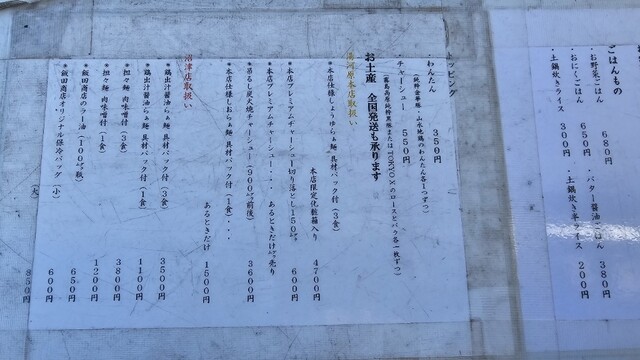 ごはんもの
・お野菜ごはん 680円
・おにくごはん 650円
・バター醤油ごはん 380円
・土鍋炊きライス 300円
・土鍋炊き半ライス 200円
トッピング
・わんたん 350円
(純粋金華豚・山水地鶏のわんたん各1つずつ)
・チャーシュー 550円
(霧島高原純粋黒豚またはTOKYO XのロースとバラA各一枚ずつ)
お土産 全国発送も承ります
湯河原本店取扱い
*本店仕様しょうゆらぁ麺 具材パック付(3食)
本店限定化粧箱入り 4700円
*本店プレミアムチャーシュー切り落とし150㌘ 600円
*本店プレミアムチャーシュー・・・ あるときだけ㌘売り
*吊るし炭火焼チャーシュー(900㌘前後) 3600円
*本店仕様しおらぁ麺 具材パック付(1食)・・・
あるときだけ 1500円
沼津店取扱い
*鶏出汁醤油らぁ麺 具材パック付(3食) 3500円
*鶏出汁醤油らぁ麺 具材パック付(1食) 1100円
*担々麺 肉味噌付(3食) 3800円
*担々麺 肉味噌付(1食) 1200円
*飯田商店のラー油(100㌘瓶) 650円
*飯田商店オリジナル保冷バッグ(小) 600円
(大) 850円